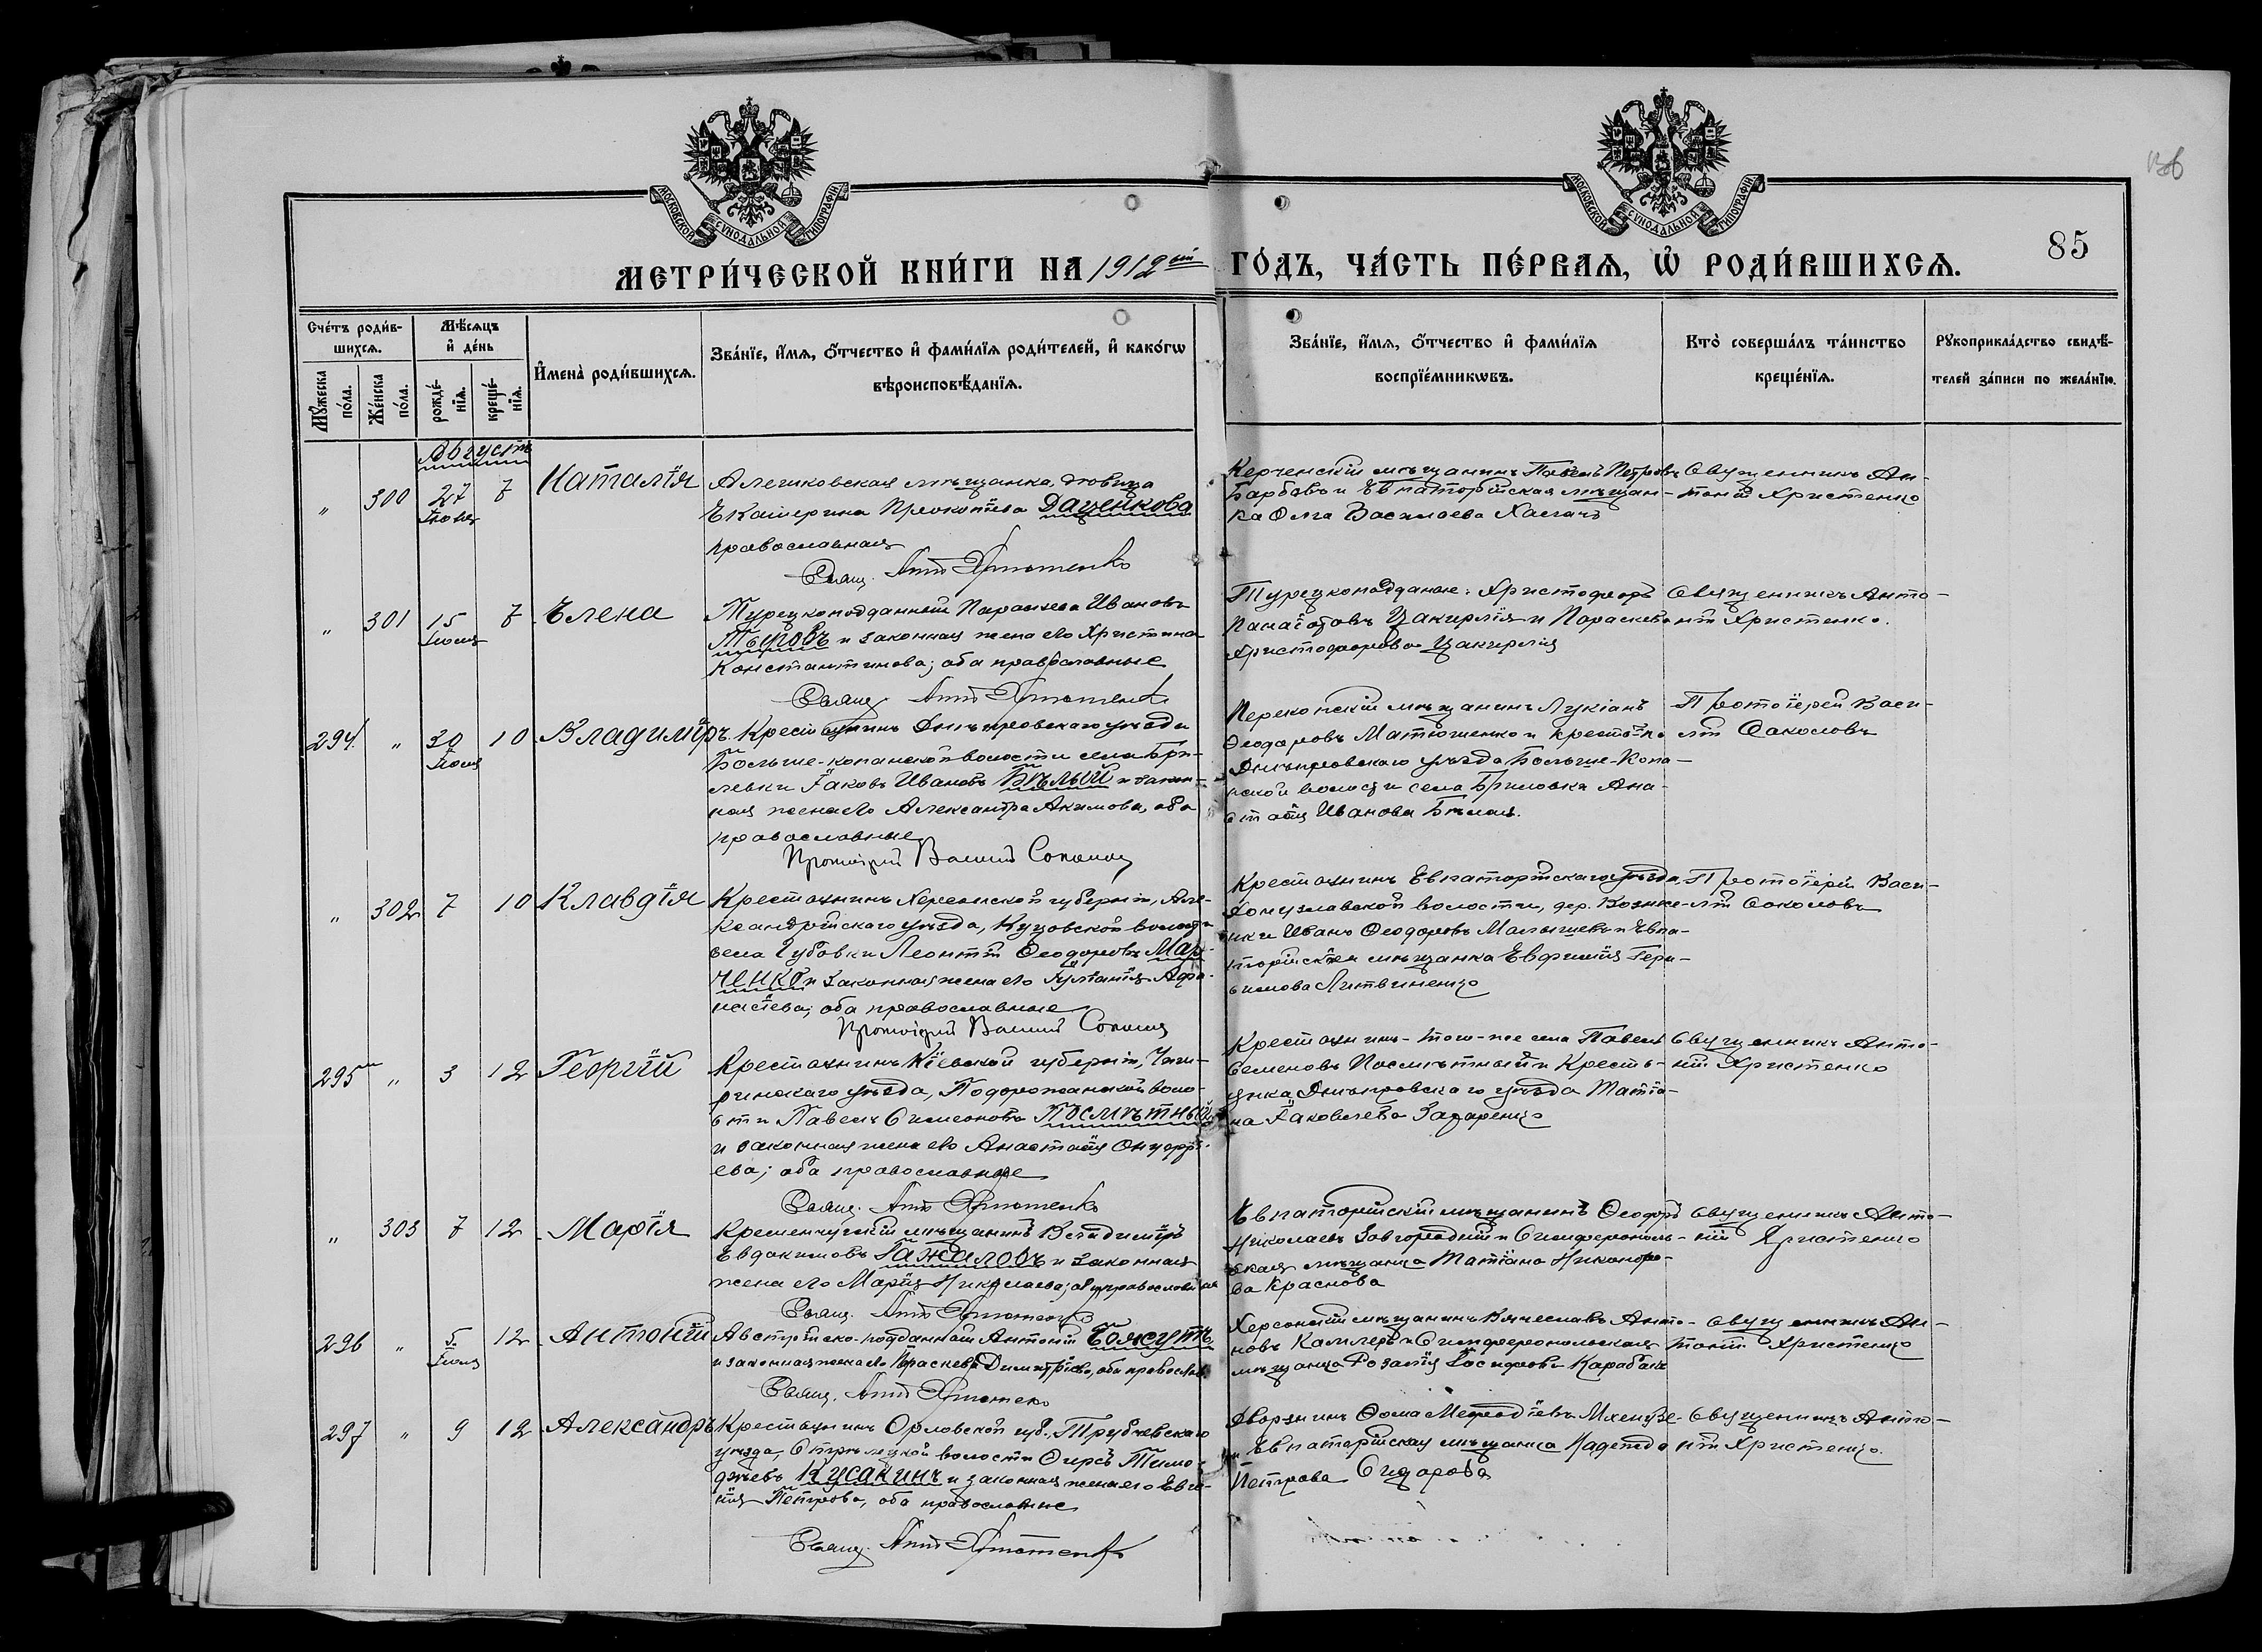 МОСКОВСКОЙ СѴНОДАЛЬНОЙ ТИПОГРАФІИ
МОСКОВСКОЙ СѴНОДАЛЬНОЙ ТИПОГРАФІИ
85
МЕТРИ́ЧЕСКОЙ КНИ́ГИ НА 1912й ГО́ДЪ, ЧА́СТЬ ПЕ́РВАѦ, Ѡ҆ РОДИ́ВШИХСѦ.
Сче́тъ роди́в-
шихсѧ.
Мꙋ́жеска по́ла.
Же́нска по́ла.
Мѣ́сѧцъ
и҆ де́нь
рожде́-
нїѧ.
креще́-
нїѧ.
И҆мена̀ роди́вшихсѧ.
Зва́нїе, и҆́мѧ, ѻ҆́тчество и҆ фами́лїѧ роди́телей, и҆ како́гѡ
вѣроисповѣ́данїѧ.
Зва́нїе, и҆́мѧ, ѻ҆́тчество и҆ фами́лїѧ
воспрїе́мникѡвъ.
Кто̀ соверша́лъ та́инство
креще́нїѧ.
Рꙋкоприкла́дство свидѣ́-
телей за́писи по жела́нїю.
Августъ
" 300 27 7 Наталія
Алешковская мѣщанка, девица
Екатерина Прокопіева Даценкова
православная
Свящ. Ант. Христенко
Керченскій мѣщанинъ Павелъ Петровъ
Барбовъ и Евпаторійская мѣщан-
ка Ольга Васильева
Священникъ Ан-
тоній Христенко
" 301 15 7 Елена
Іюля
Турецкоподданный Параскева Ивановъ
и законная жена его Христина
Константинова; оба православные
Свящ. Ант. Христенко
Турецкоподданные: Христофоръ
Панаіотовъ Цакирлія и Параскева
Христофорова Цакирлія
Священникъ Анто-
ній Христенко.
294 " 30 10 Владиміръ
Іюля
Крестьянинъ Днѣпровскаго уѣзда
Больше-копанской волости села Бри-
левки Іаковъ Ивановъ Бѣлый и закон-
ная жена его Александра Акимова, оба
православные
Протоіерей Василій Соколовъ
Перекопскій мѣщанинъ Лукіанъ
Ѳеодоровъ Матюшенко и крестьянка
Днѣпровскаго уѣзда Больше-Копа-
нской волости села Бриловка Ана-
стасія Иванова Бѣлая.
Протоіерей Васи-
лій Соколовъ
" 302 7 10 Клавдія
Крестьянинъ Херсонской губерніи, Але-
ксандрійскаго уѣзда, Куцовской волости
села Губовки Леонтій Ѳеодоровъ Мар-
ченко и законная жена его Іуліанія Афа-
насіева; оба православные
Протоіерей Василій Соколовъ
Крестьянинъ Евпаторійскаго уѣзда,
Донузлавской волости, дер.
Иванъ Ѳеодоровъ Малышевъ и Евпа-
торійская мѣщанка Евфимія Гера-
симова Литвиненко
Протоіерей Васи-
лій Соколовъ
295 " 3 12 Георгій
Крестьянинъ Кіевской губерніи, Чиги-
ринскаго уѣзда, Подорожанской воло-
сти Павелъ Симеоновъ Посмѣтный
и законная жена его Анастасія Онуфрі-
ева; оба православные
Свящ. Ант. Христенко
Крестьянинъ-того-же села Павелъ
Семеновъ Посмѣтный и Кресть-
янка Днѣпровскаго уѣзда Татіа-
на Іаковлева Захаренко
Священникъ Анто-
ній Христенко
" 303 7 12 Марія
Кременчугскій мѣщанинъ Владиміръ
Евдокимовъ Гажаловъ и законная
жена его Марія Николаева; оба православные
Свящ. Ант. Христенко
Евпаторійскій мѣщанинъ Ѳеодоръ
Николаевъ Завгородній и Симферополь-
ская мѣщанка Татіана Никаноро-
ва Краснова
Священникъ Анто-
ній Христенко
296 " 5 12 Антоній
Іюля
Австрійско-подданный Антоній
и законная жена его Параскева Димитріева, оба православ.
Свящ. Ант. Христенко
Херсонскій мѣщанинъ Вячеславъ Анто-
новъ и Симферопольская
мѣщанка Розалія Іосифова
Священникъ Ан-
тоній Христенко
297 " 9 12 Александръ
Крестьянинъ Орловской губ. Трубчевскаго
уѣзда, Стрѣлецкой волости Ѳирсъ Тимо-
феевъ Кусакинъ и законная жена его Евге-
нія Петрова, оба православные
Свящ. Ант. Христенко
Дворянинъ Ѳома Меѳодіевъ
Евпаторійская мѣщанка Надежда
Петрова Сидорова
Священникъ Анто-
ній Христенко.